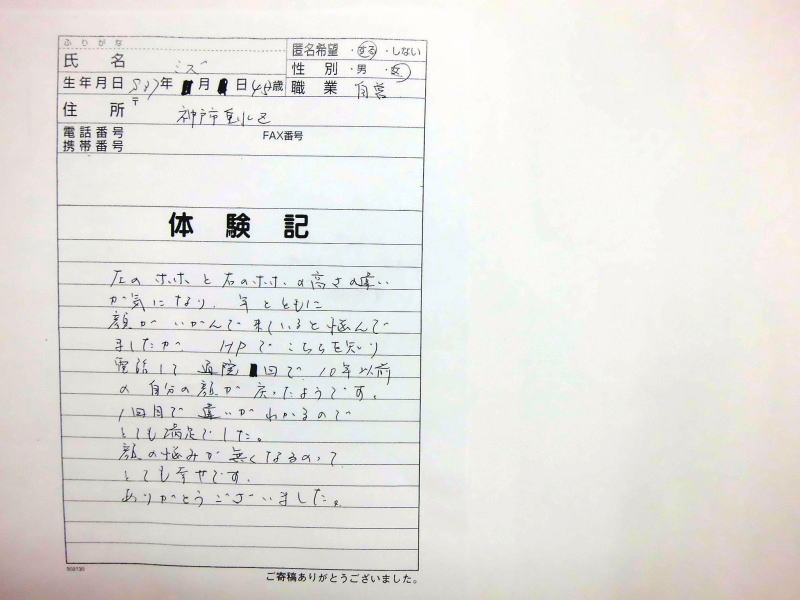 ふりがな
氏名 ミズ
匿名希望 ・する ・しない
性別 ・男 ・女
生年月日 S37年 月 日(45歳)
職業 自営
〒
住所 神戸市垂水区
電話番号 FAX番号
携帯番号
体験記
左のホホと右のホホの高さの違い
が気になり、年とともに
顔がいがんで来ていると悩んで
ましたが HPでこちらを知り
電話して 通院 回で 10年以前
の自分の顔が戻ったようです。
1回目で違いがわかるので
とても満足でした。
顔の悩みが無くなるのって
とても幸せです。
ありがとうございました。
ご寄稿ありがとうございました。